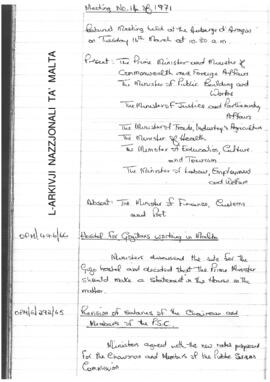 Meeting No. 14 of 1971
Cabinet Meeting held at the Auberge d'Aragon
on Tuesday 16th March at 10.30 a.m.
Present: The Prime Minister and Minister of
Commonwealth and Foreign Affairs
The Minister of Public Building and
Works
The Minister of Justice and Parliamentary
Affairs
The Minister of Trade, Industry & Agriculture
The Minister of Health
The Minister of Education, Culture
and Tourism
The Minister of Labour, Employment
and Welfare
Absent: The Minister of Finance, Customs
and Port
L-ARKIVJI NAZZJONALI TA' MALTA
Hostel for Gozitans working in Malta
Ministers discussed the site for the
Gozo hostel and decided that the Prime Minister
should make a statement in the House on the
matter.
OPM/6/292/65
Revision of salaries of the Chairman and
Members of the P.S.C.
Ministers agreed with the new rates proposed
for the Chairman and Members of the Public Service
Commission